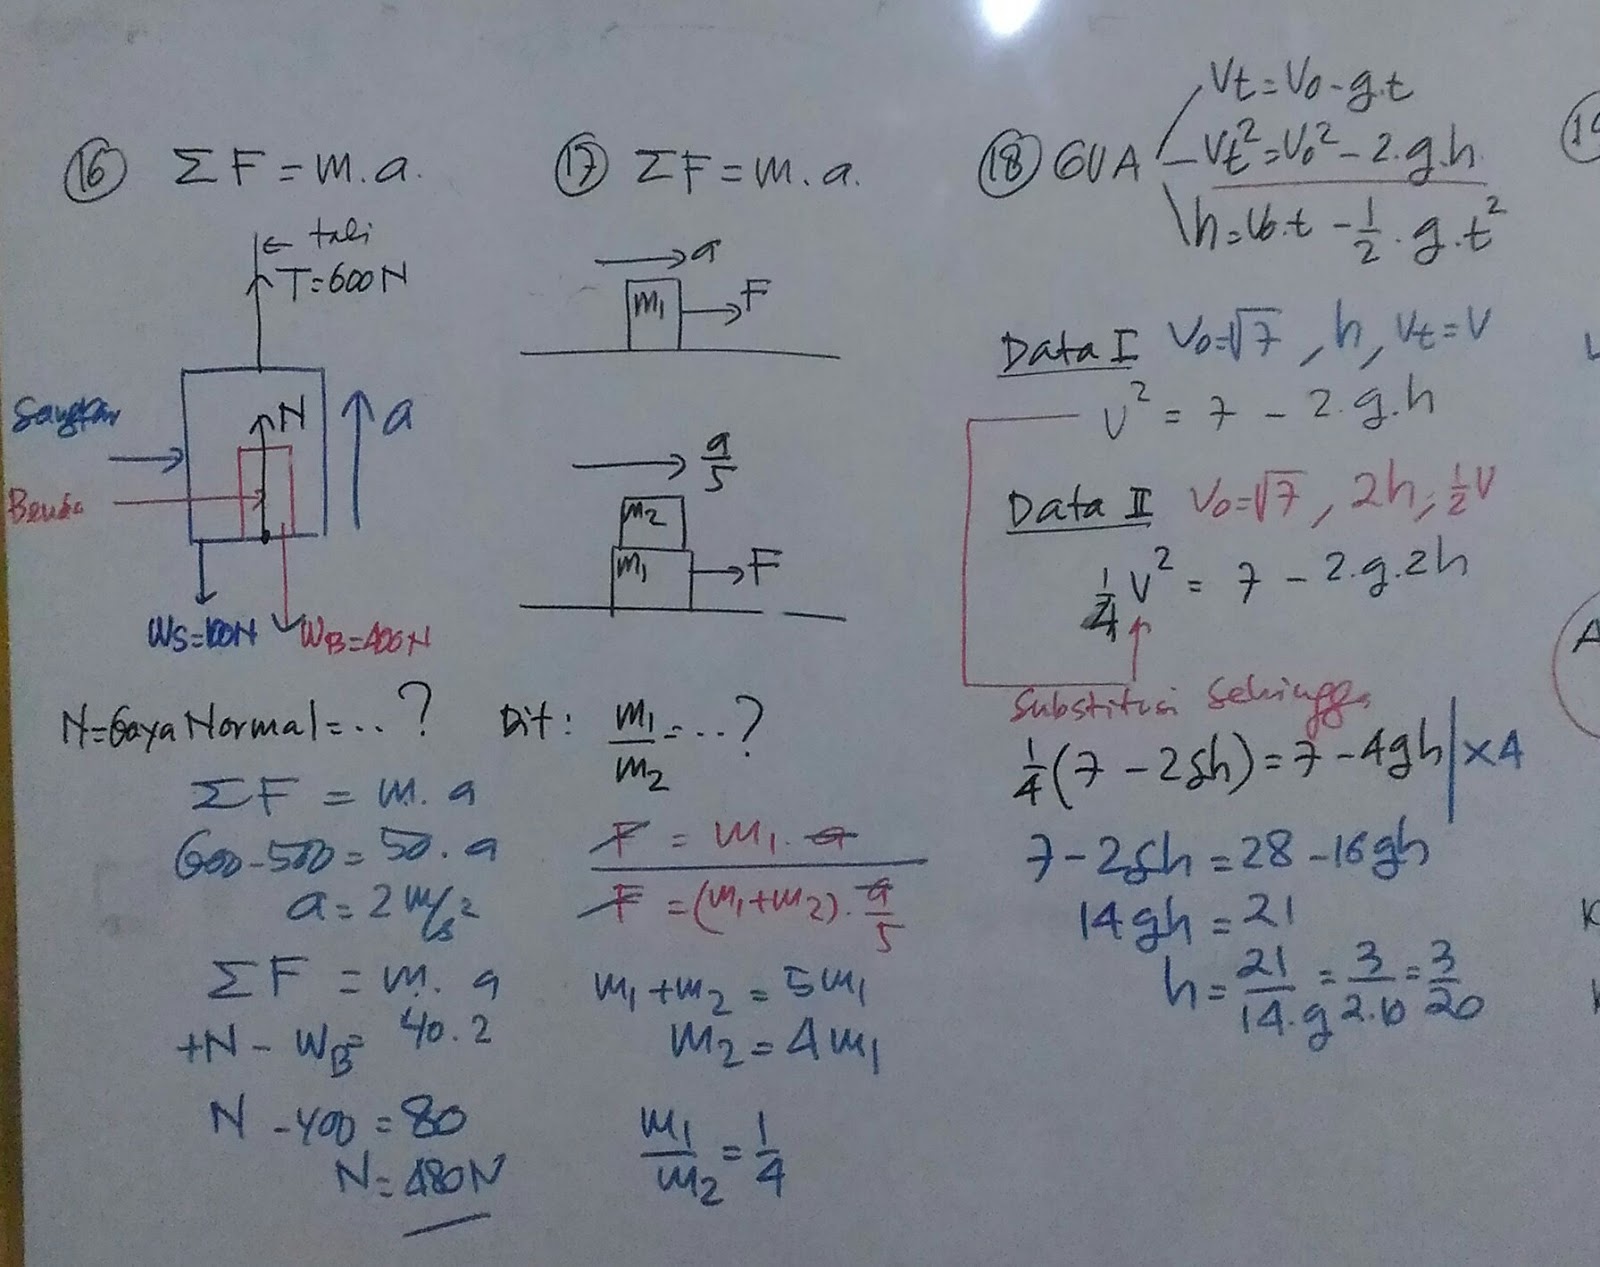 16 ΣF = m.a.
← tali
T=600N
N
a
Sangkar
Benda
Ws=100N
WB=400N
N=Gaya Normal=...?
ΣF = m.a
600-500=50.a
a=2 m/s²
ΣF = m.a
+N - WB= 40.2
N - 400 = 80
N=480N
17 ΣF=m.a.
a
m₁ F
a/5
m₂
m₁ F
Dit: m₁/m₂=...?
F = m₁.a
F =(m₁+m₂).a/5
m₁+m₂=5m₁
m₂=4m₁
m₁/m₂=1/4
18 GVA
Vt=Vo-g.t
Vt²=Vo²-2.g.h
h=Vo.t-1/2.g.t²
Data I Vo=√7, h, Vt=V
V²=7-2.g.h
Data II Vo=√7, 2h, 1/2V
1/4V²=7-2.g.2h
Substitusi sehingga
1/4(7-2gh)=7-4gh|×4
7-2gh=28-16gh
14gh=21
h=21/14.g=3/2.10=3/20